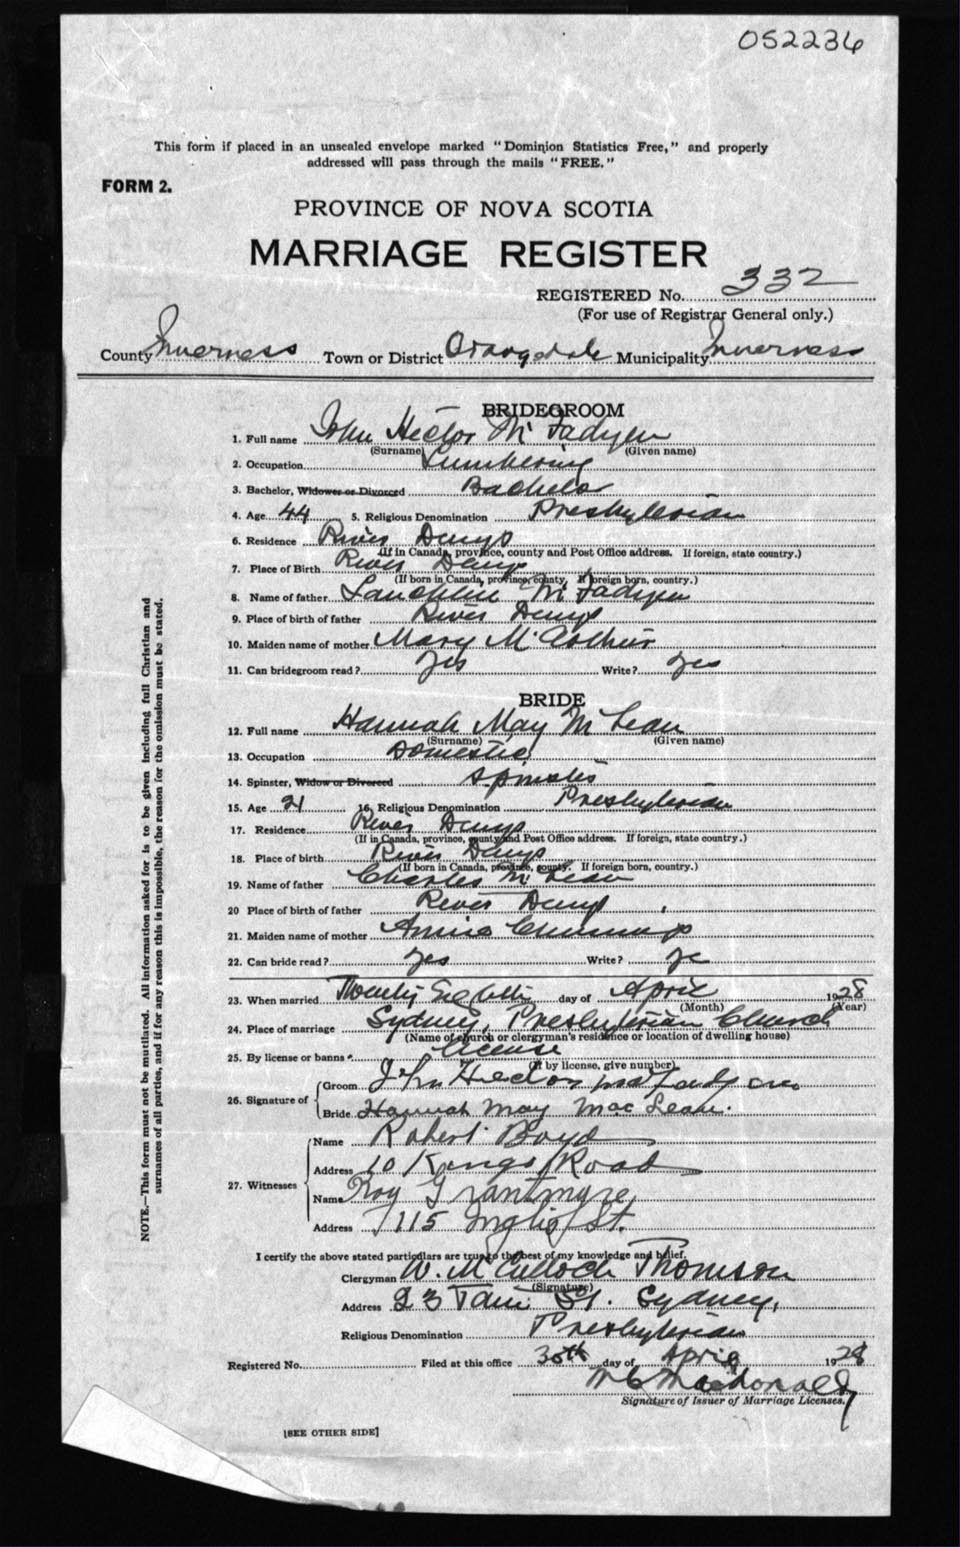 052236
This form if placed in an unsealed envelope marked "Dominion Statistics Free," and properly
addressed will pass through the mails "FREE."
FORM 2.
PROVINCE OF NOVA SCOTIA
MARRIAGE REGISTER
REGISTERED No. 332
(For use of Registrar General only.)
County Inverness Town or District Orangedale Municipality Inverness
BRIDEGROOM
1. Full name John Hector McFadyen
(Surname) (Given name)
2. Occupation Lumbering
3. Bachelor, Widower or Divorced Bachelor
4. Age 44 5. Religious Denomination Presbyterian
6. Residence River Denys
(If in Canada, province, county and Post Office address. If foreign, state country.)
7. Place of Birth River Denys
(If born in Canada, province, county. If foreign born, country.)
8. Name of father Lauchlin McFadyen
9. Place of birth of father River Denys
10. Maiden name of mother Mary McArthur
11. Can bridegroom read? Yes Write? Yes
BRIDE
12. Full name Hannah May McLean
(Surname) (Given name)
13. Occupation Domestic
14. Spinster, Widow or Divorced Spinster
15. Age 21 16. Religious Denomination Presbyterian
17. Residence River Denys
(If in Canada, province, county and Post Office address. If foreign, state country.)
18. Place of birth River Denys
(If born in Canada, province, county. If foreign born, country.)
19. Name of father Charles McLean
20 Place of birth of father River Denys
21. Maiden name of mother Annie
22. Can bride read? Yes Write? Ye
23. When married Twenty Eighth day of April 1928
(Month) (Year)
24. Place of marriage Sydney, Presbyterian Church
(Name of church or clergyman's residence or location of dwelling house)
25. By license or banns License
(If by license, give number)
26. Signature of Groom John Hector MacFadyen
Bride Hannah May MacLean.
27. Witnesses Name Robert Boyd
Address 10 Kings Road
Name Roy Grantmyre,
Address 115 Inglis St.
I certify the above stated particulars are true to the best of my knowledge and belief.
Clergyman W. McCulloch Thomson
(Signature)
Address 23 St. Sydney,
Religious Denomination Presbyterian
Registered No. Filed at this office 30th day of April 1928
MacDonald
Signature of Issuer of Marriage Licenses.
[SEE OTHER SIDE]
NOTE.—This form must not be mutilated. All information asked for is to be given including full Christian and
surnames of all parties, and if for any reason this is impossible, the reason for the omission must be stated.